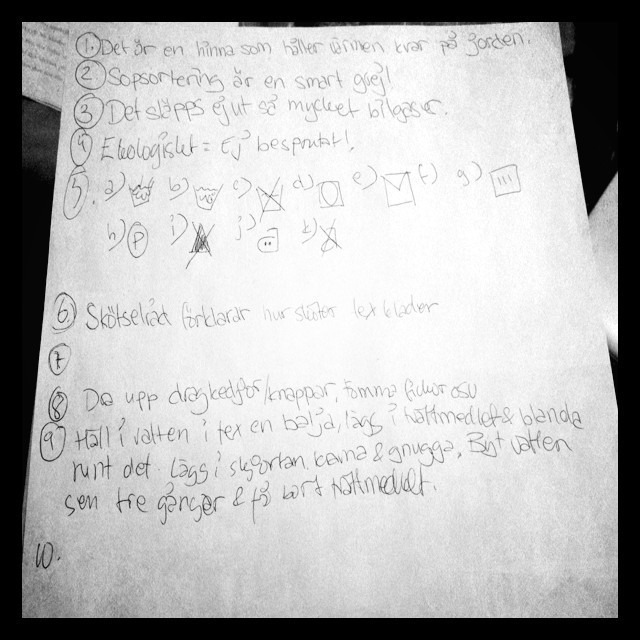 1. Det är en hinna som håller värmen kvar på jorden.
2 Sopsortering är en smart grej!
3 Det släpps ej ut så mycket bilgaser.
4 Ekologiskt = Ej besprutat!
5. a) b) c) d) e) f) g)
h) P i) j) k)
6 Skötselråd förklarar hur sköter tex kläder
7
8 Dra upp dragkedjor/knappar, tömma fickor osv
9 Häll i vatten i tex en balja, lägg i tvättmedlet & blanda
runt det. Lägg i skjortan, & gnugga. Byt vatten
sen tre gånger & få bort tvättmedlet.
10.